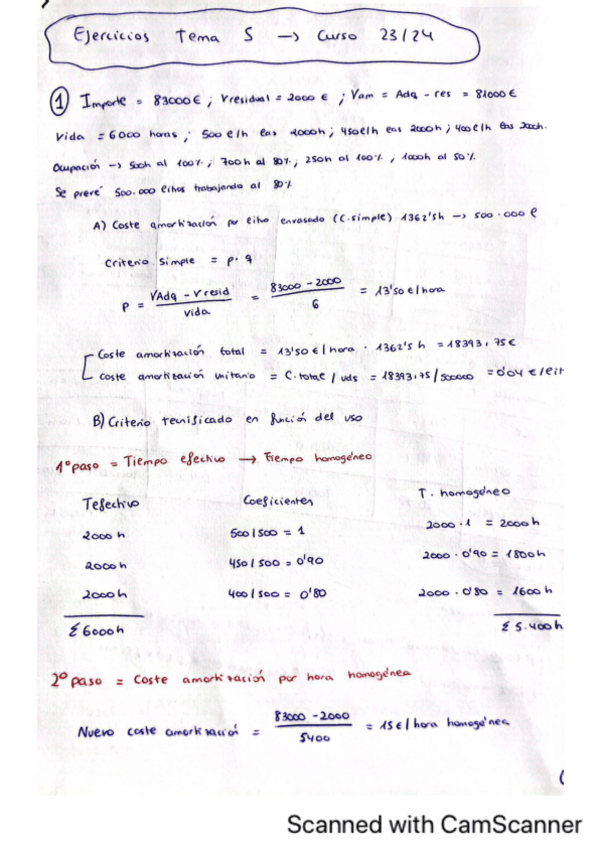 Ejercicios Tema 5 → Curso 23/24
① Importe = 83000€ ; Vresidual = 2000 € ; Vam = Adq - res = 81000€
Vida = 6000 horas ; 500 e/h las 2000h ; 450e/h las 2000h ; 400e/h las 2000h.
Ocupación → 500h al 100% ; 700h al 80% ; 250h al 100% , 1000h al 50%.
Se preveé 500.000 eitos trabajando al 80%
A) Coste amortización por eito envasado (C. simple) 1362'5h → 500.000 e
Criterio Simple = p. q
p = VAdq - Vresid / vida = 83000 - 2000 / 6 = 13'50 €/hora
Coste amortización total = 13'50 €/hora · 1362'5 h = 18393,75€
Coste amortización unitario = C.total / uds = 18393,75/500000 = 0'04 €/eit
B) Criterio tecnificado en función del uso
1º paso = Tiempo efectivo → Tiempo homogéneo
Tefectivo Coeficientes T. homogéneo
2000 h 500/500 = 1 2000 · 1 = 2000h
2000 h 450/500 = 0'90 2000 · 0'90 = 1800h
2000 h 400/500 = 0'80 2000 · 0'80 = 1600 h
Σ 6000h Σ 5.400h
2º paso = Coste amortización por hora homogénea
Nuevo coste amortización = 83000 - 2000 / 5400 = 15€/hora homogénea
Scanned with CamScanner